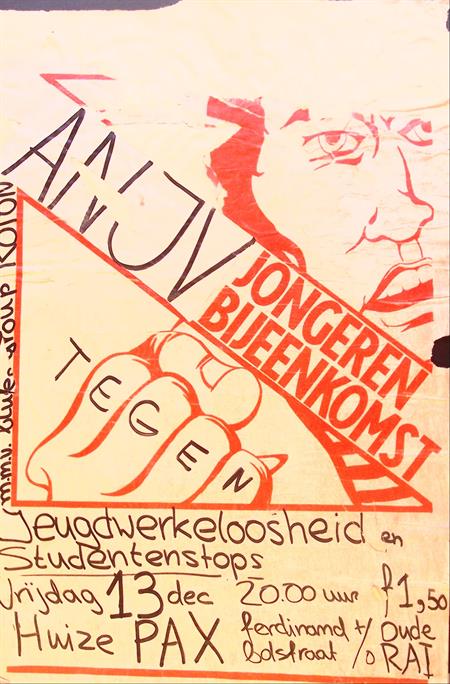 ANJV
JONGEREN
BIJEENKOMST
TEGEN
Jeugdwerkeloosheid en
Studentenstops
Vrijdag 13 dec 20.00 uur f 1,50
Huize PAX ferdinand t/o Oude
bolstraat RAI
m.m.v. group KOTON